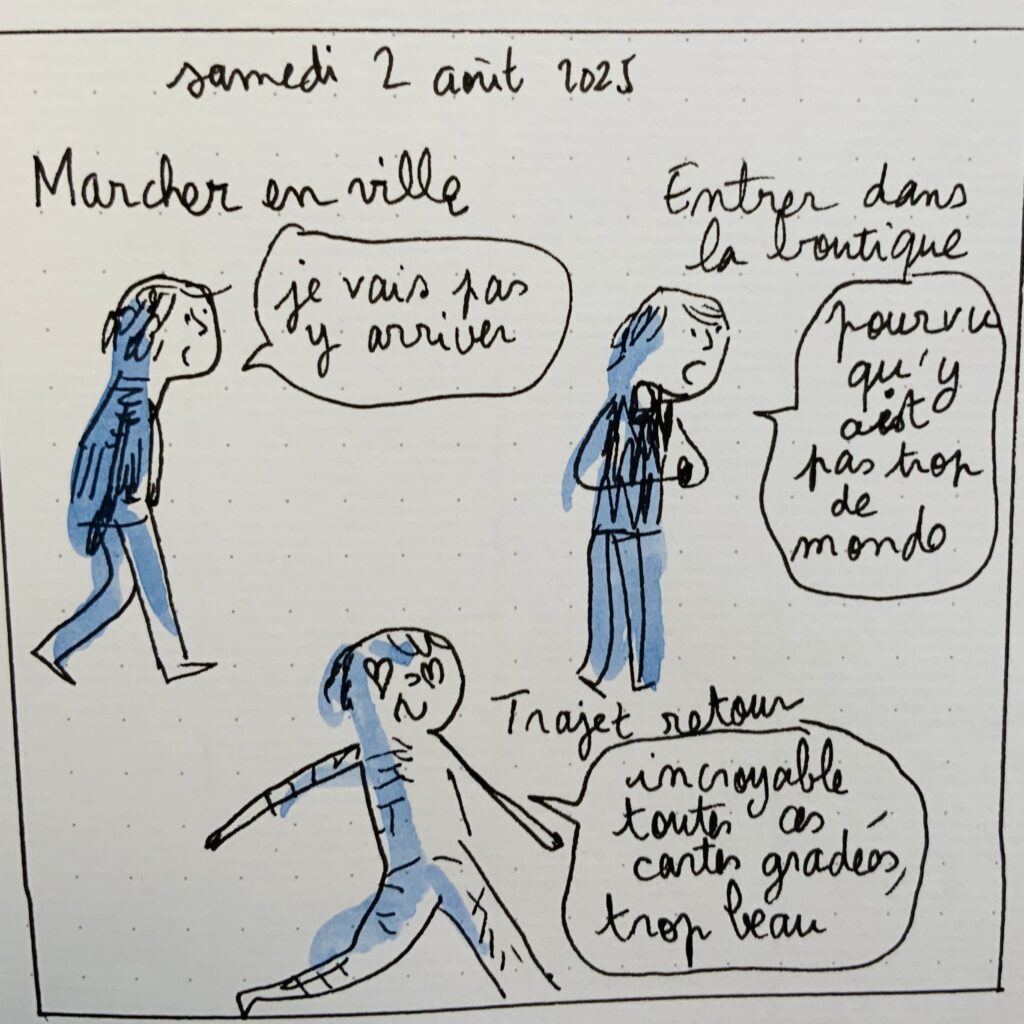 samedi 2 août 2025
Marcher en ville
je vais pas
y arriver
Entrer dans
la boutique
pourvu
qu'y
ait
pas trop
de
monde
Trajet retour
incroyable
toutes ces
cartes gradées,
trop beau